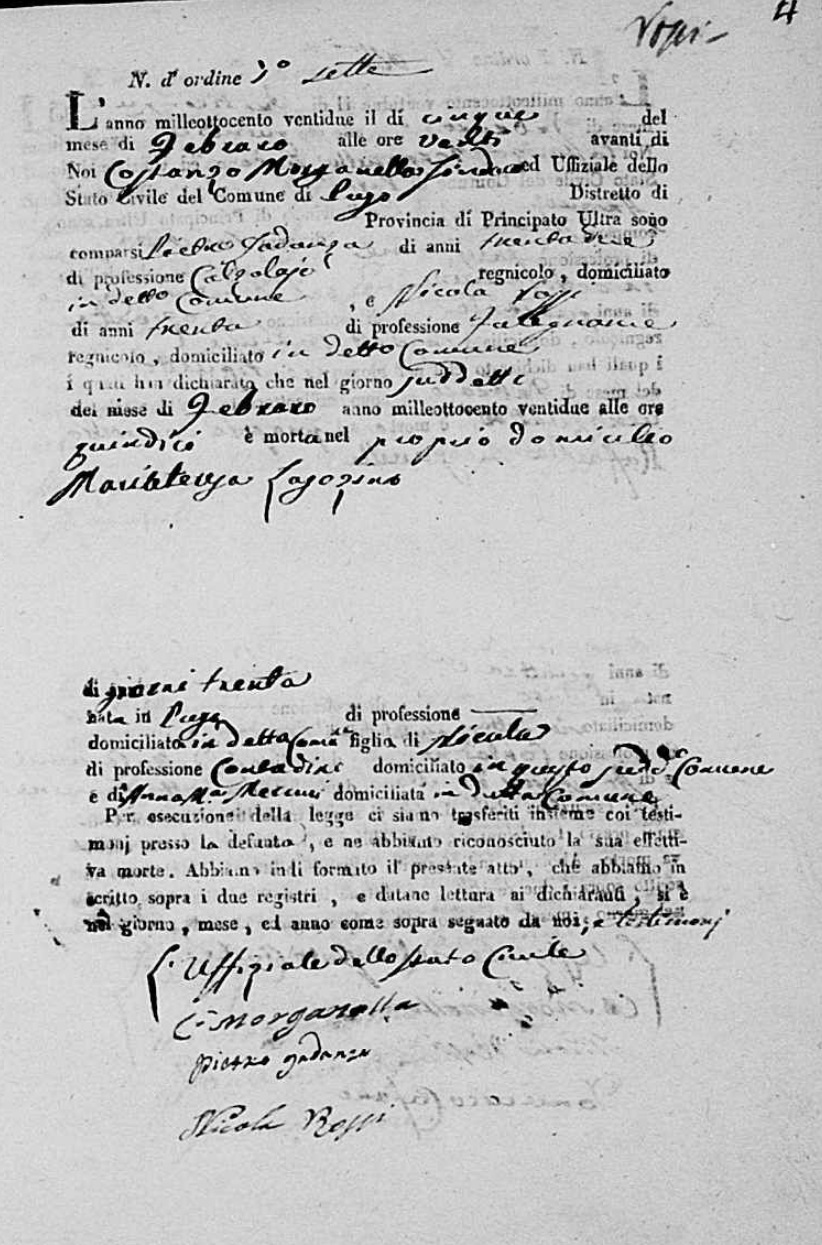 4
N. d' ordine 7° sette
L'anno milleottocento ventidue il dì cinque del
mese di Febraro alle ore venti avanti di
Noi Costanzo Morganella Sindaco ed Uffiziale dello
Stato Civile del Comune di Distretto di
Provincia di Principato Ultra sono
comparsi Pietro Iadanza di anni trenta
di professione Calzolajo regnicolo, domiciliato
in detto Comune, e Nicola Rossi
di anni trenta di professione Falegname
regnicolo, domiciliato in detto Comune
i quali han dichiarato che nel giorno suddetto
del mese di Febraro anno milleottocento ventidue alle ore
quindici è morta nel proprio domicilio
Mariateresa
di giorni trenta
nata in di professione —
domiciliata in detto Comne figlia di Nicola
di professione Contadino domiciliato in questo sudd° Comune
e di Anna Ma domiciliata in detto Comune
Per esecuzione della legge ci siamo trasferiti insieme coi testi-
monj presso la defunta, e ne abbiamo riconosciuto la sua effetti-
va morte. Abbiamo indi formato il presente atto, che abbiamo in
scritto sopra i due registri, e datane lettura ai dichiaranti, si è
nel giorno, mese, ed anno come sopra segnato da noi, e testimonj
L'Uffiziale dello Stato Civile
C. Morganella
pietro Iadanza
Nicola Rossi